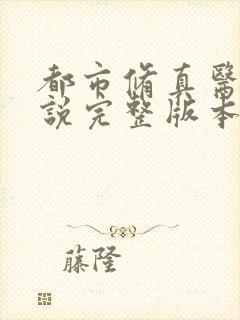 都市脩真醫
說完整版本
藤隆